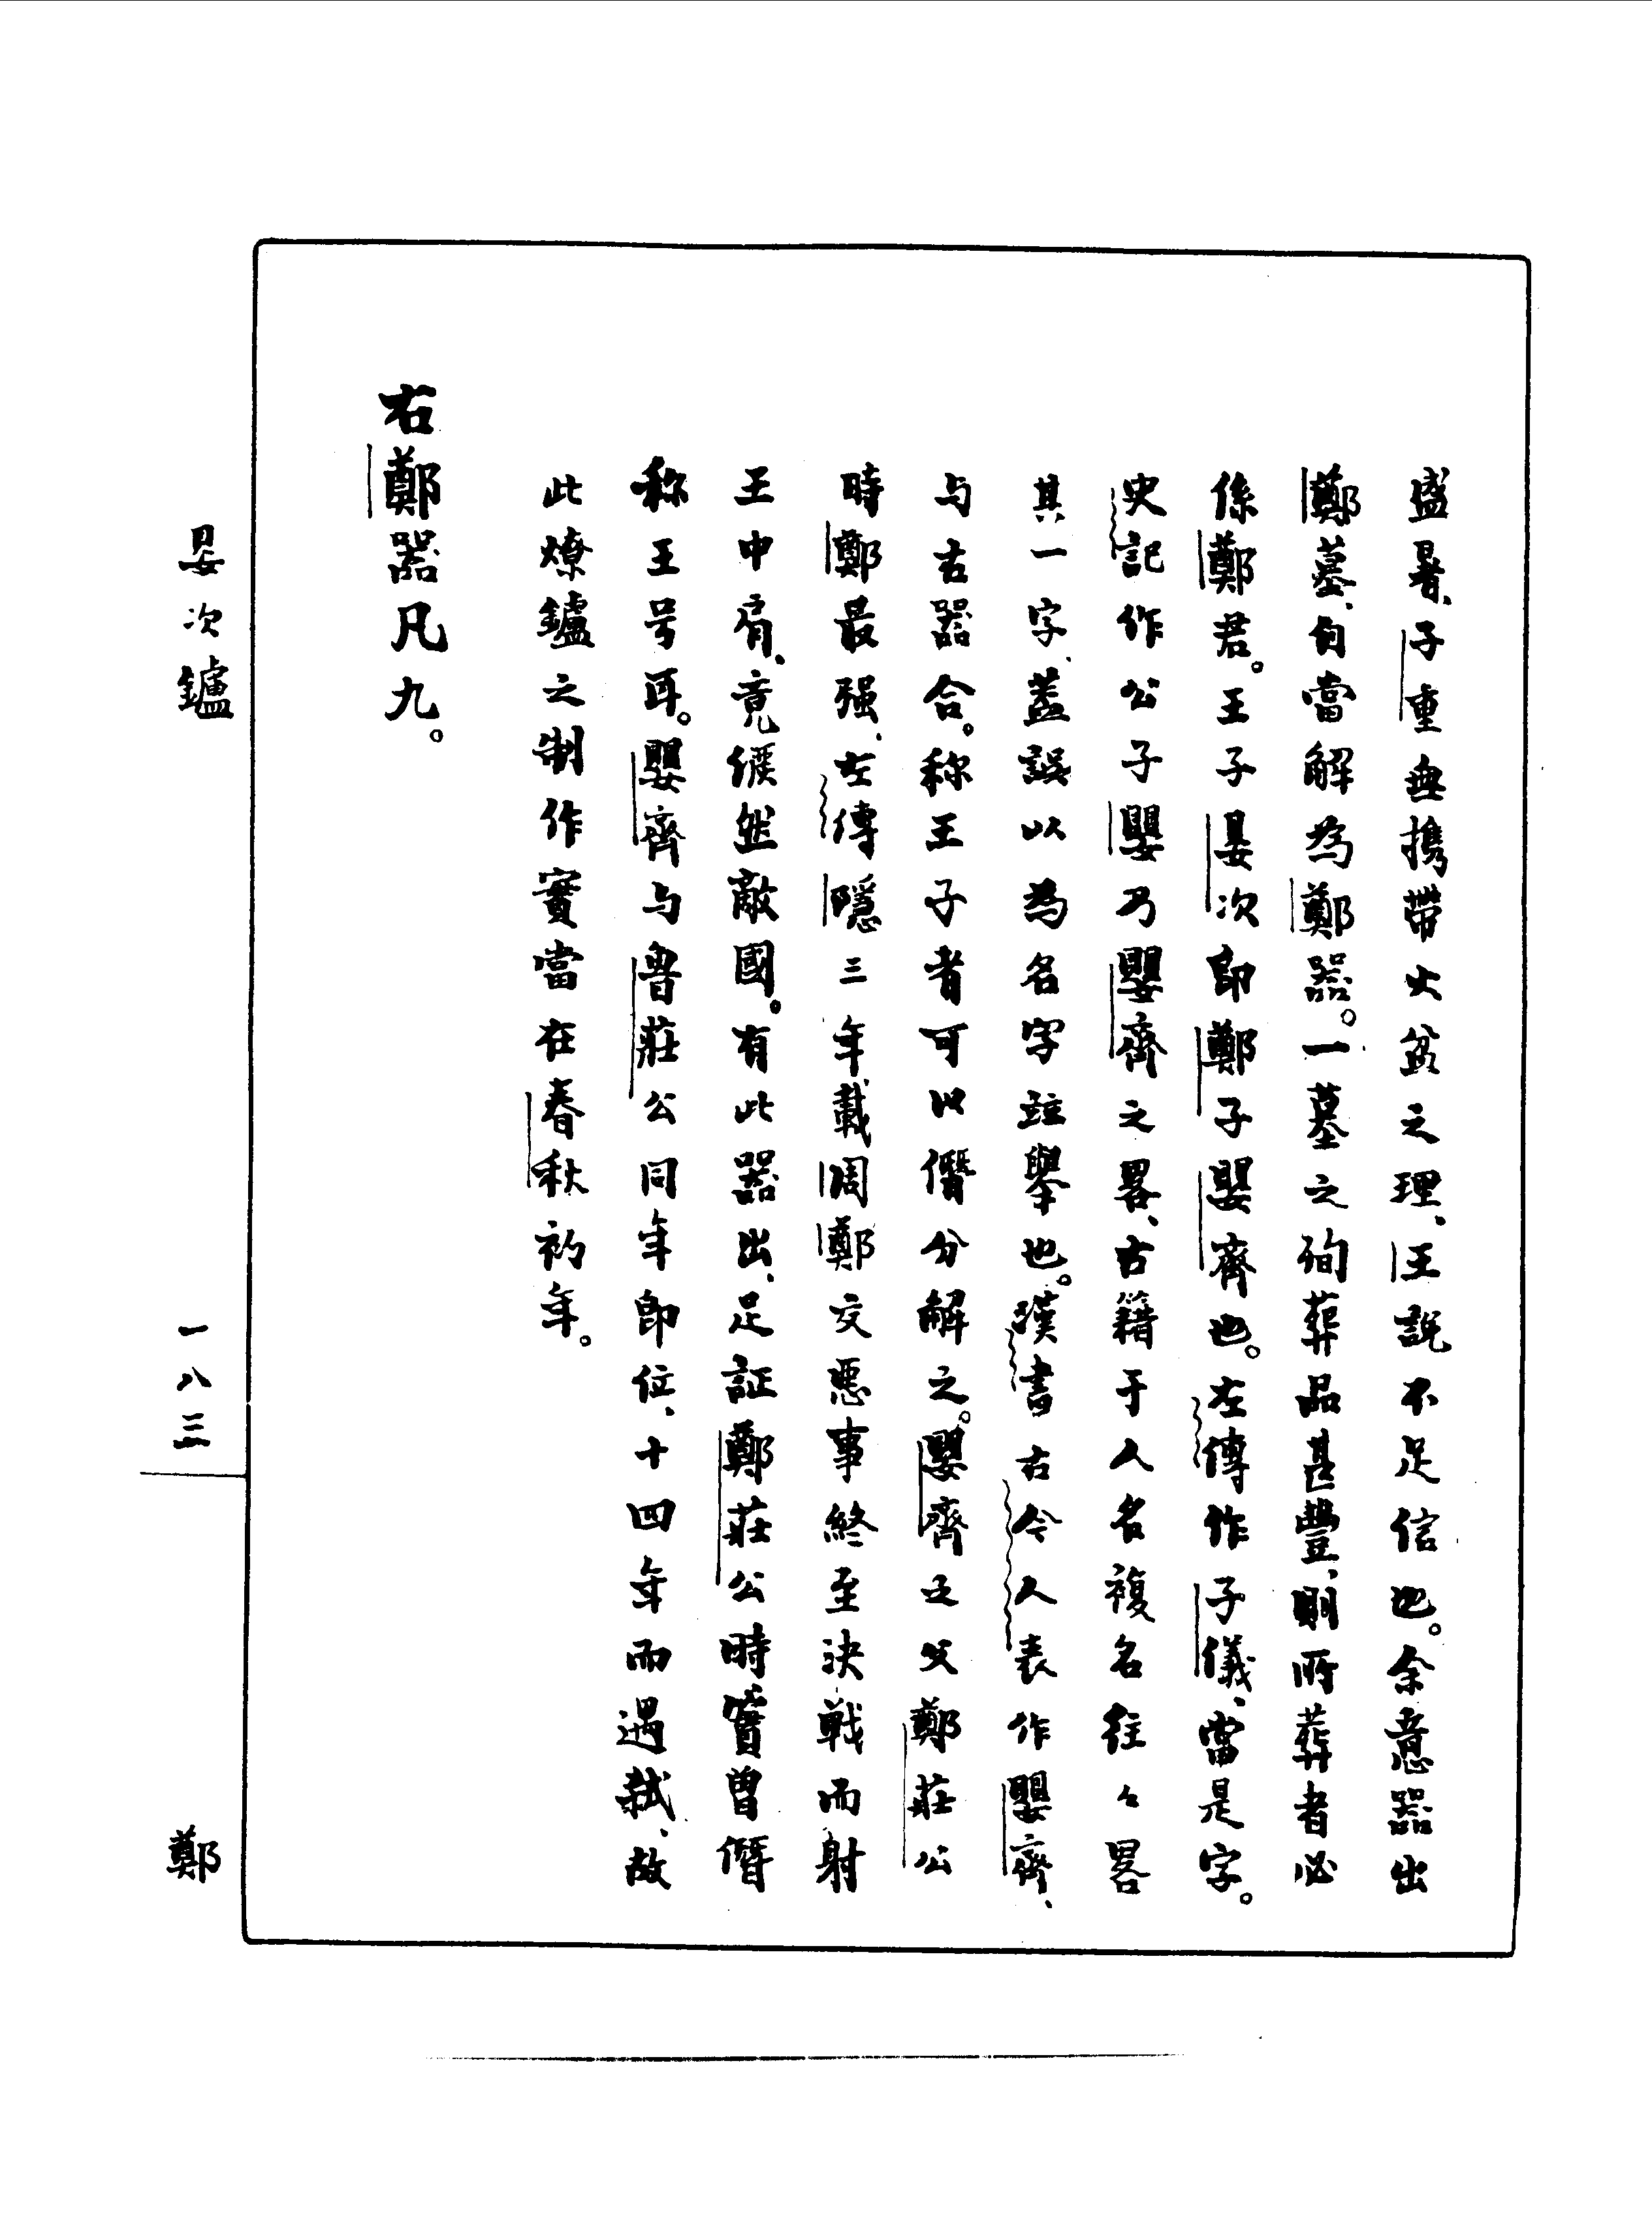 盛暑、子重無携帶火盆之理、王説不足信也。余意器出
鄭墓、自當解為鄭器。一墓之殉葬品甚豐、則所葬者必
係鄭君。王子晏次即鄭子嬰齊也。左傳作子儀、當是字。
史記作公子嬰乃嬰齊之畧、古籍于人名複名往々畧
其一字、蓋誤以為名字竝舉也。漢書古今人表作嬰齊、
与古器合。称王子者可以僭分解之。嬰齊之父鄭莊公
時鄭最强、左傳隱三年載周鄭交惡事終至決戰而射
王中肩、竟儼然敵國。有此器出、足証鄭莊公時實曾僭
称王号耳。嬰齊与魯莊公同年即位、十四年而遇弑、故
此燎鑪之制作實當在春秋初年。
右鄭器凡九。
晏次鑪
一八三
鄭